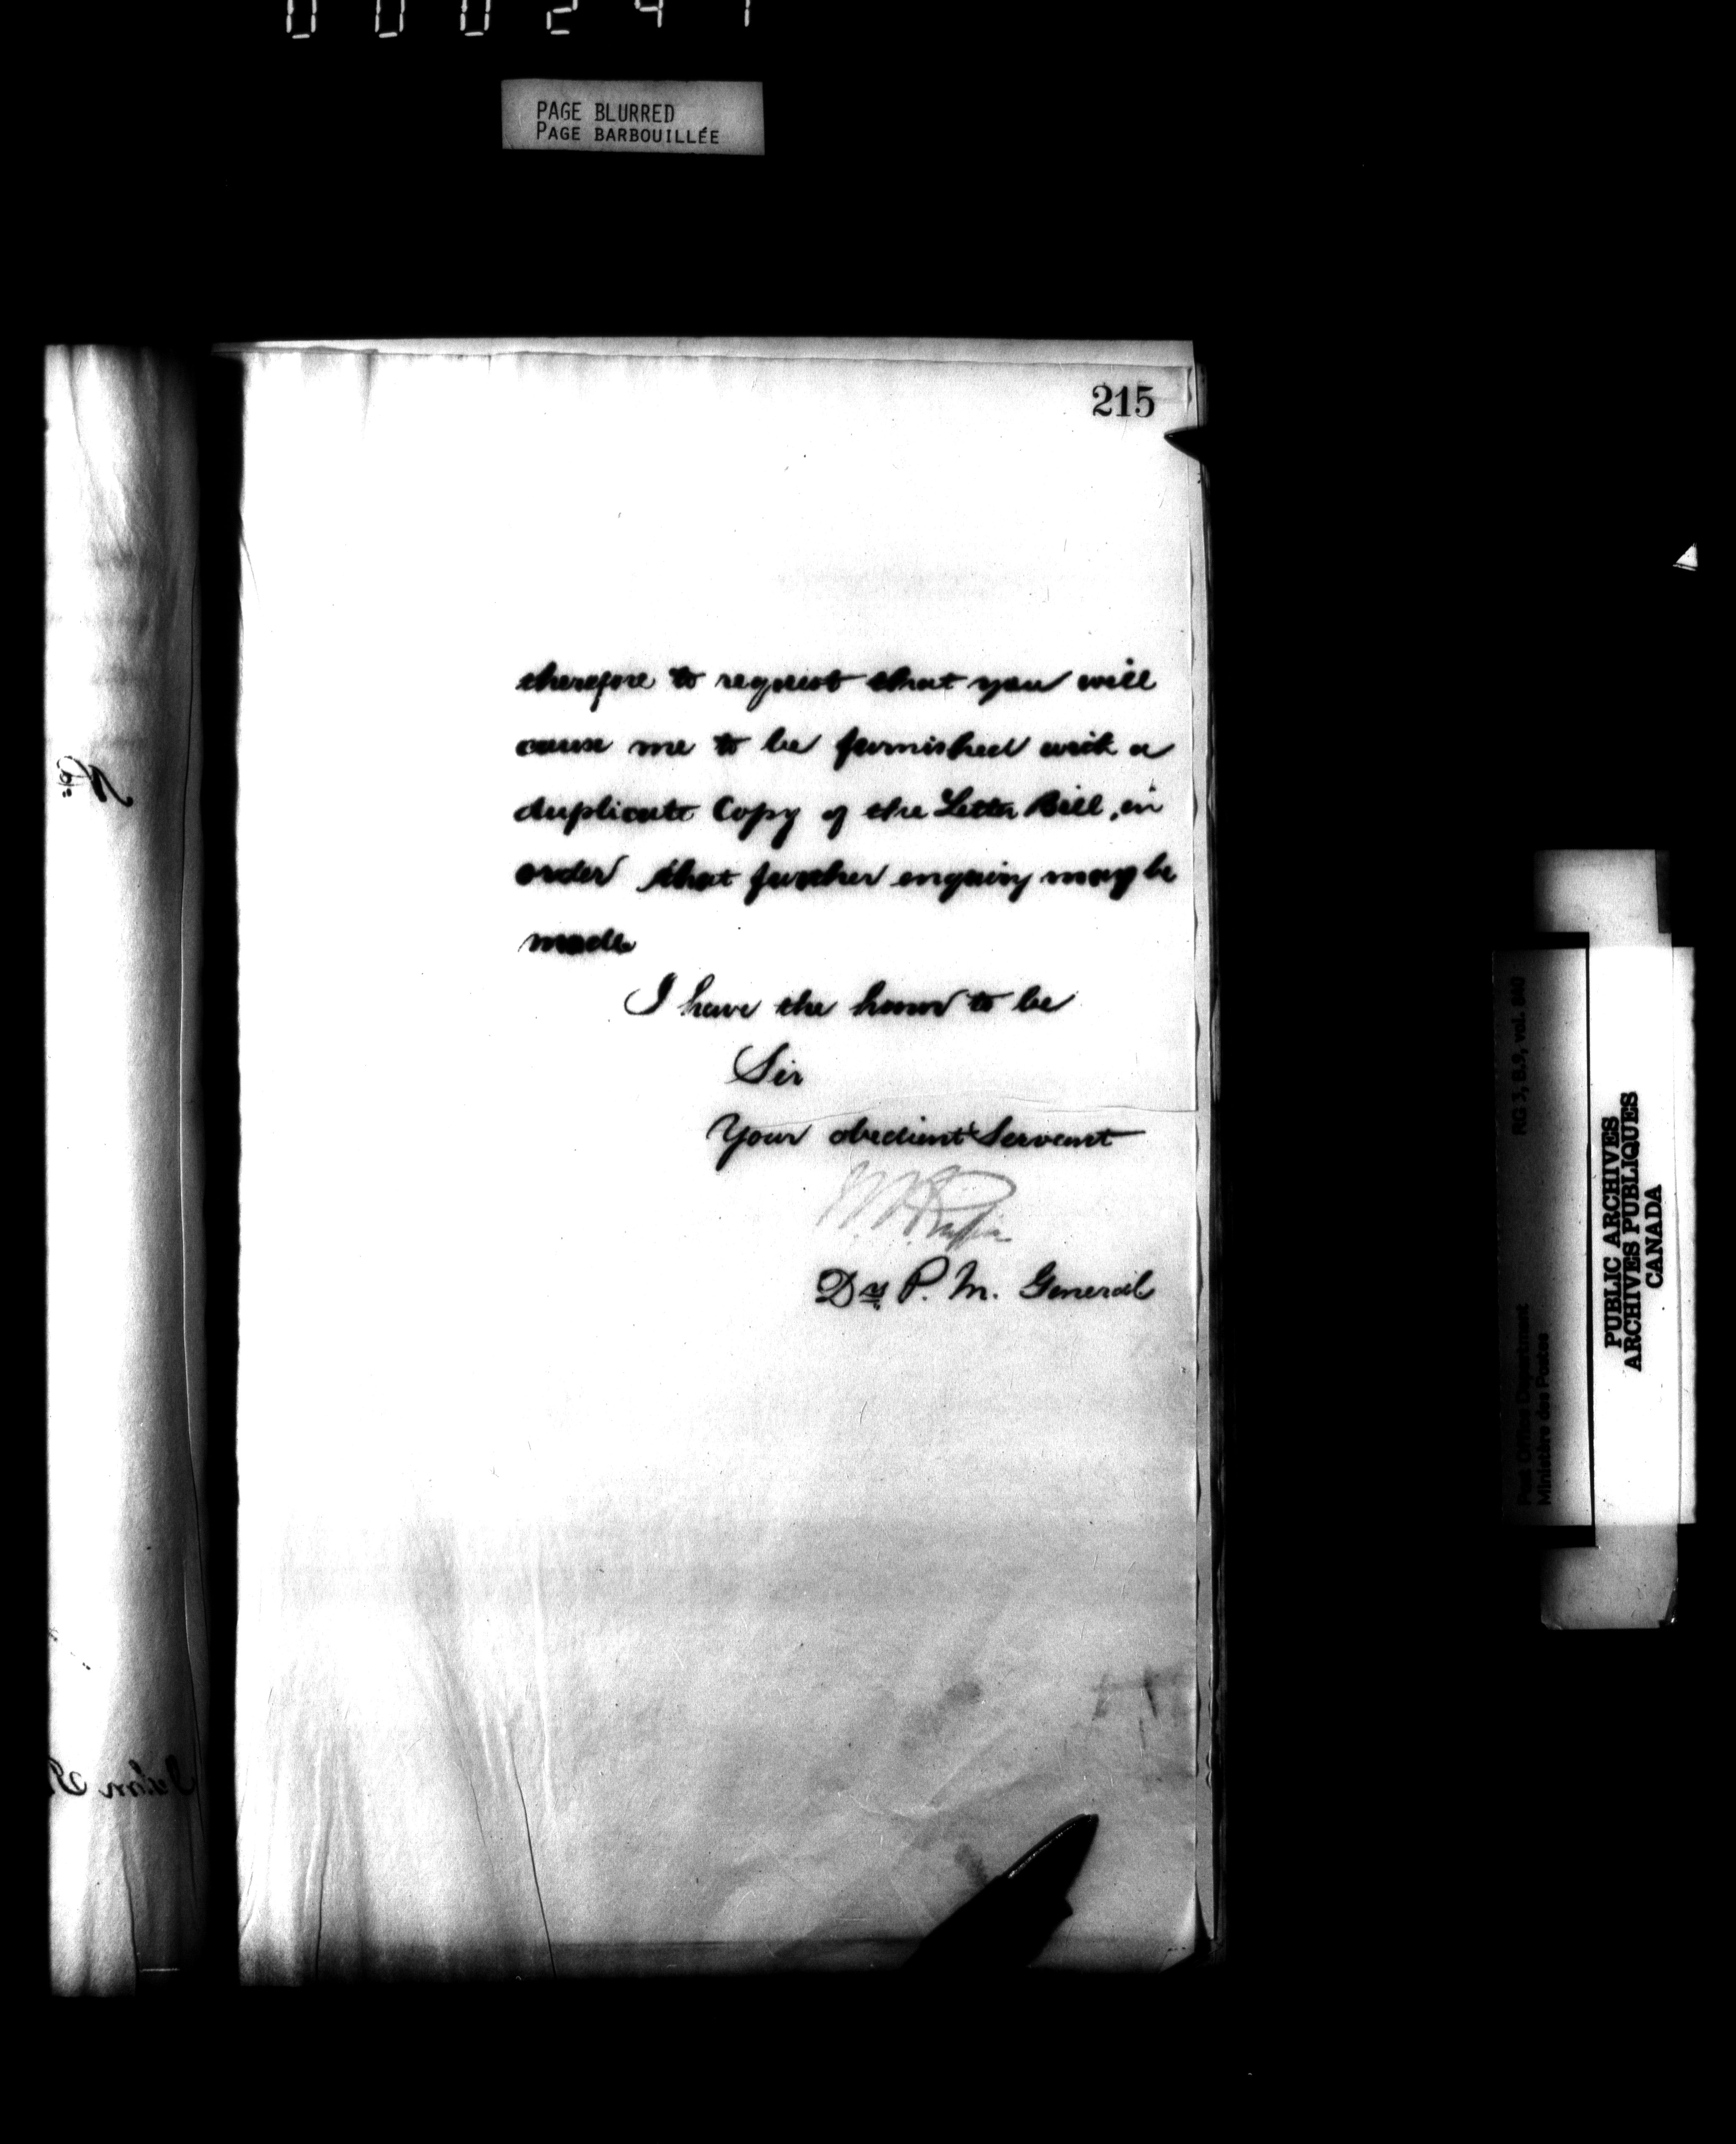 000241
PAGE BLURRED
PAGE BARBOUILLÉE
215
therefore to request that you will
cause me to be furnished with a
duplicate Copy of the Letter Bill, in
order that further enquiry may be
made
I have the honor to be
Sir
Your obedient Servant
Dy P. M. General
No
RG 3, B.9, vol. 
Post Office Department
Ministère des Postes
PUBLIC ARCHIVES
ARCHIVES PUBLIQUES
CANADA